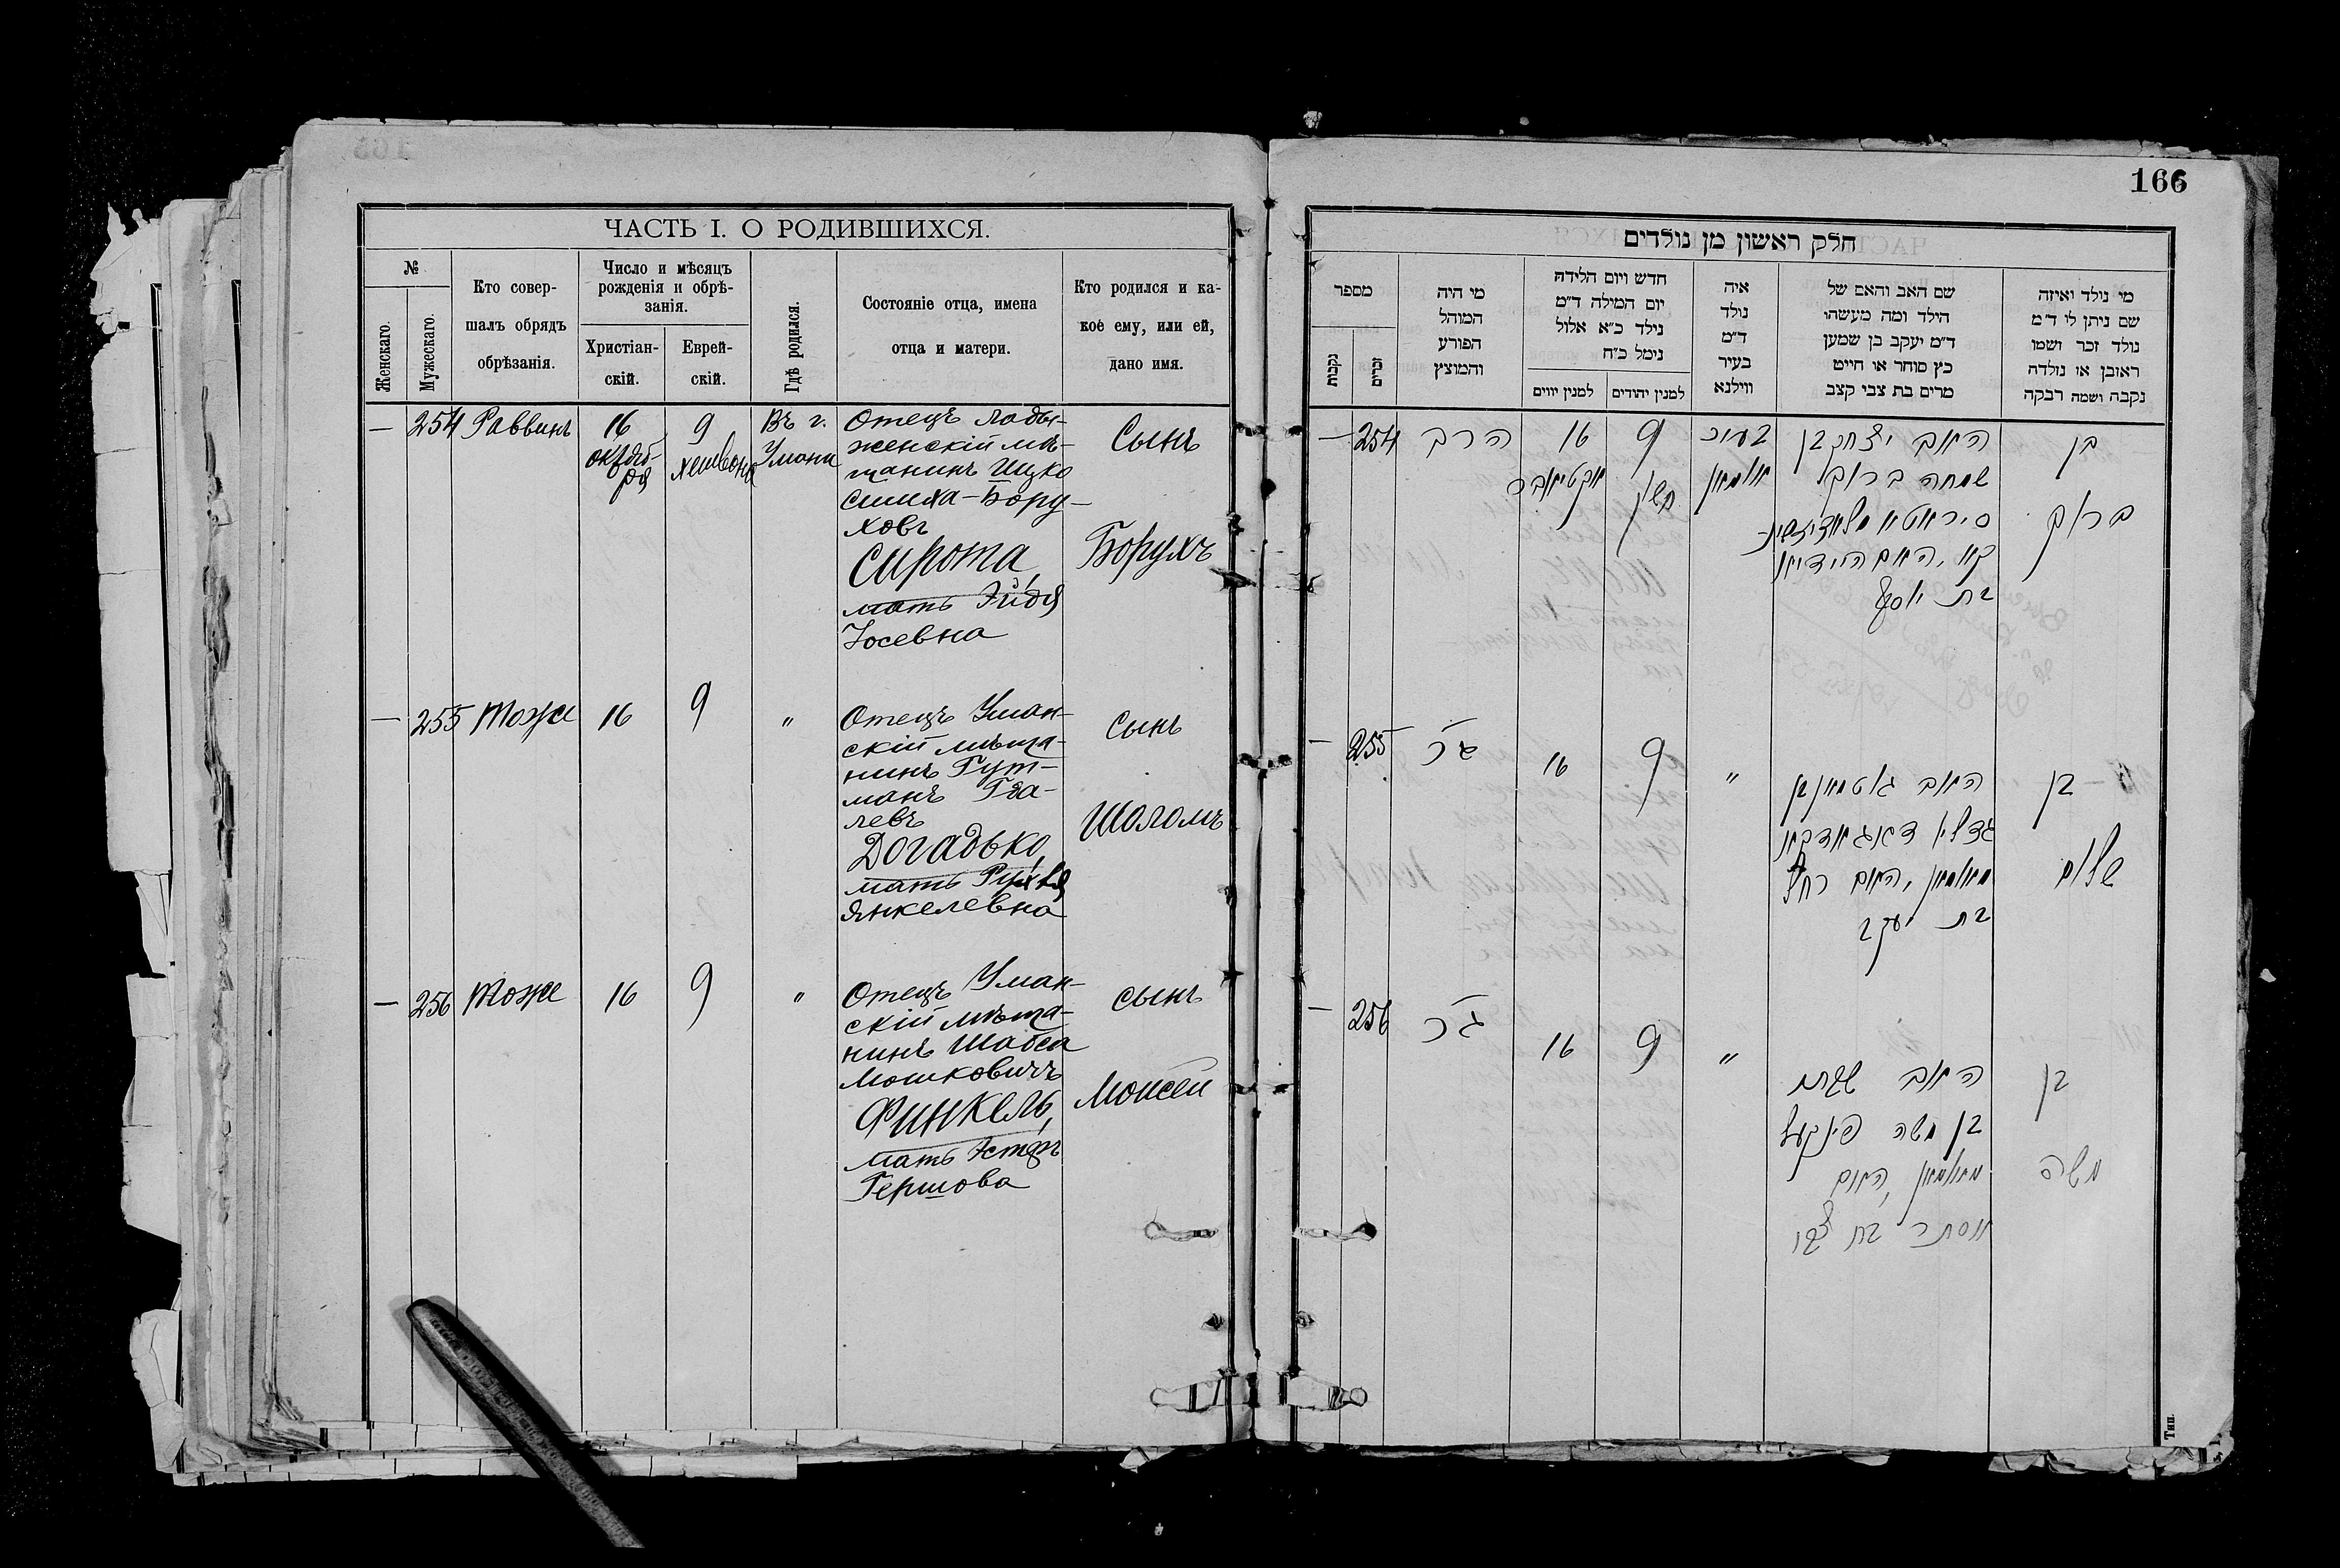 166
ЧАСТЬ I. О РОДИВШИХСЯ.
№
Женскаго.
Мужескаго.
Кто совер-
шалъ обрядъ
обрѣзанія.
Число и мѣсяцъ
рожденія и обрѣ-
занія.
Христіан-
скій.
Еврей-
скій.
Гдѣ родился.
Состояніе отца, имена
отца и матери.
Кто родился и ка-
кое ему, или ей,
дано имя.
— 254 Раввинъ
16
октяб-
ря
9
хешвона
Въ г.
Умани
Отецъ лады-
женскій мѣ-
щанинъ Ицко
Симха-Бору-
ховъ
Сирота
мать Эйдя
Іосевна
Сынъ
Борухъ
— 255 Тоже 16 9 "
Отецъ Уман-
скій мѣща-
нинъ Гут-
манъ
левъ
Догадько,
мать
Янкелевна
Сынъ
Шоломъ
— 256 Тоже 16 9 "
Отецъ Уман-
скій мѣща-
нинъ Шабса
Мошковичъ
Финкель,
мать Эстеръ
Гершова
сынъ
Моисей
חלק ראשון מן נולדים
מספר
נקבות
זכרים
מי היה
המוהל
הפורע
והמוצץ
חדש ויום הלידה
יום המילה ד"מ
נילד כ"א אלול
נימל כ"ח
למנין יווים
למנין יהודים
איה
נולד
ד"מ
בעיר
ווילנא
שם האב והאם של
הילד ומה מעשהו
ד"מ יעקב בן שמען
כץ סוחר או חייט
מרים בת צבי קצב
מי נולד ואיזה
שם ניתן לו ד"מ
נולד זכר ושמו
ראובן או נולדה
נקבה ושמה רבקה
— 254 הרב
16
אקטיאבר
9
חשון
בעיר
אומאן
האב יצחק בן
שמחה ברוך
סיראטא
האם היידיא
בת יוסף
בן
ברוך
— 255
16 9 "
האב גוטמאן בן
גדליא דאגאדקא
מאומאן, האם רחל
בת יעקב
בן
שלום
— 256
16 9 "
האב שבתי
בן משה פינקעל
מאומאן, האם
אסתר בת צבי
בן
משה
Тип.